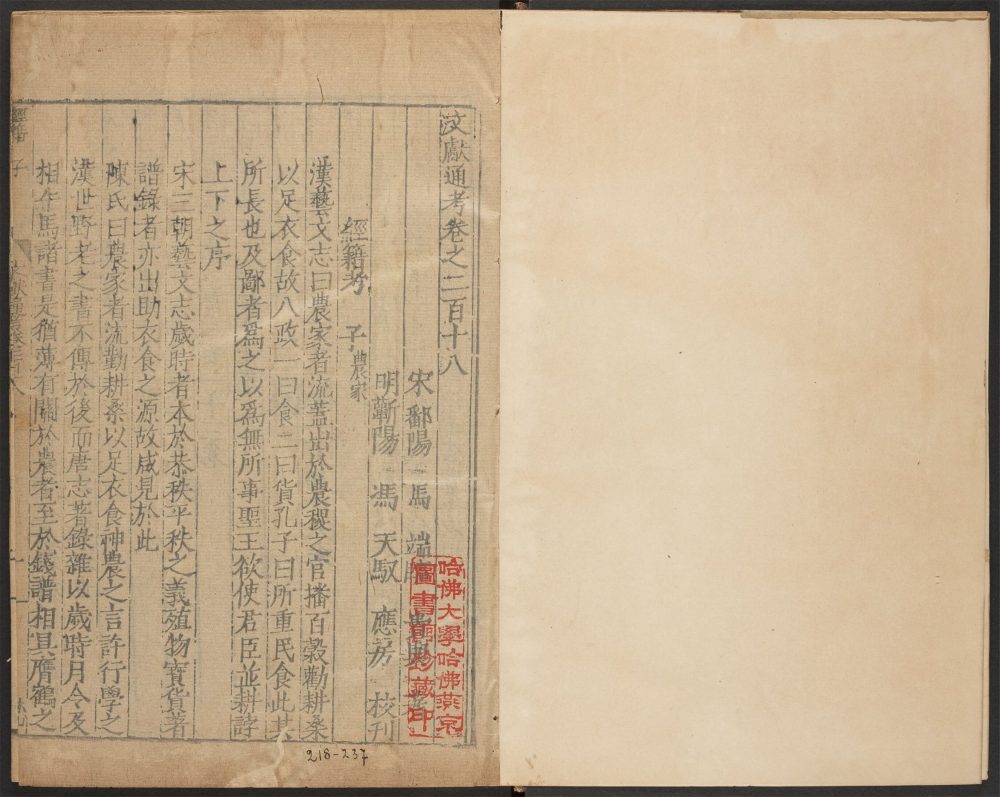 文獻通考卷之二百十八
宋鄱陽馬端臨貴與著
明蘄陽馮天馭應房校刊
經籍考 子 農家
漢藝文志曰農家者流蓋出於農稷之官播百穀勸耕桑
以足衣食故八政一曰食二曰貨孔子曰所重民食此其
所長也及鄙者爲之以爲無所事聖王欲使君臣並耕誖
上下之序
宋三朝藝文志歲時者本於恭秩平秩之義殖物寶貨著
譜錄者亦出助衣食之源故咸見於此
陳氏曰農家者流勤耕桑以足衣食神農之言許行學之
漢世野老之書不傳於後而唐志著錄雜以歲時月令及
相牛馬諸書是猶薄有關於農者至於錢譜相具鷹鶴之
經籍 子
哈佛大學哈佛燕京
圖書館珍藏印
218-237